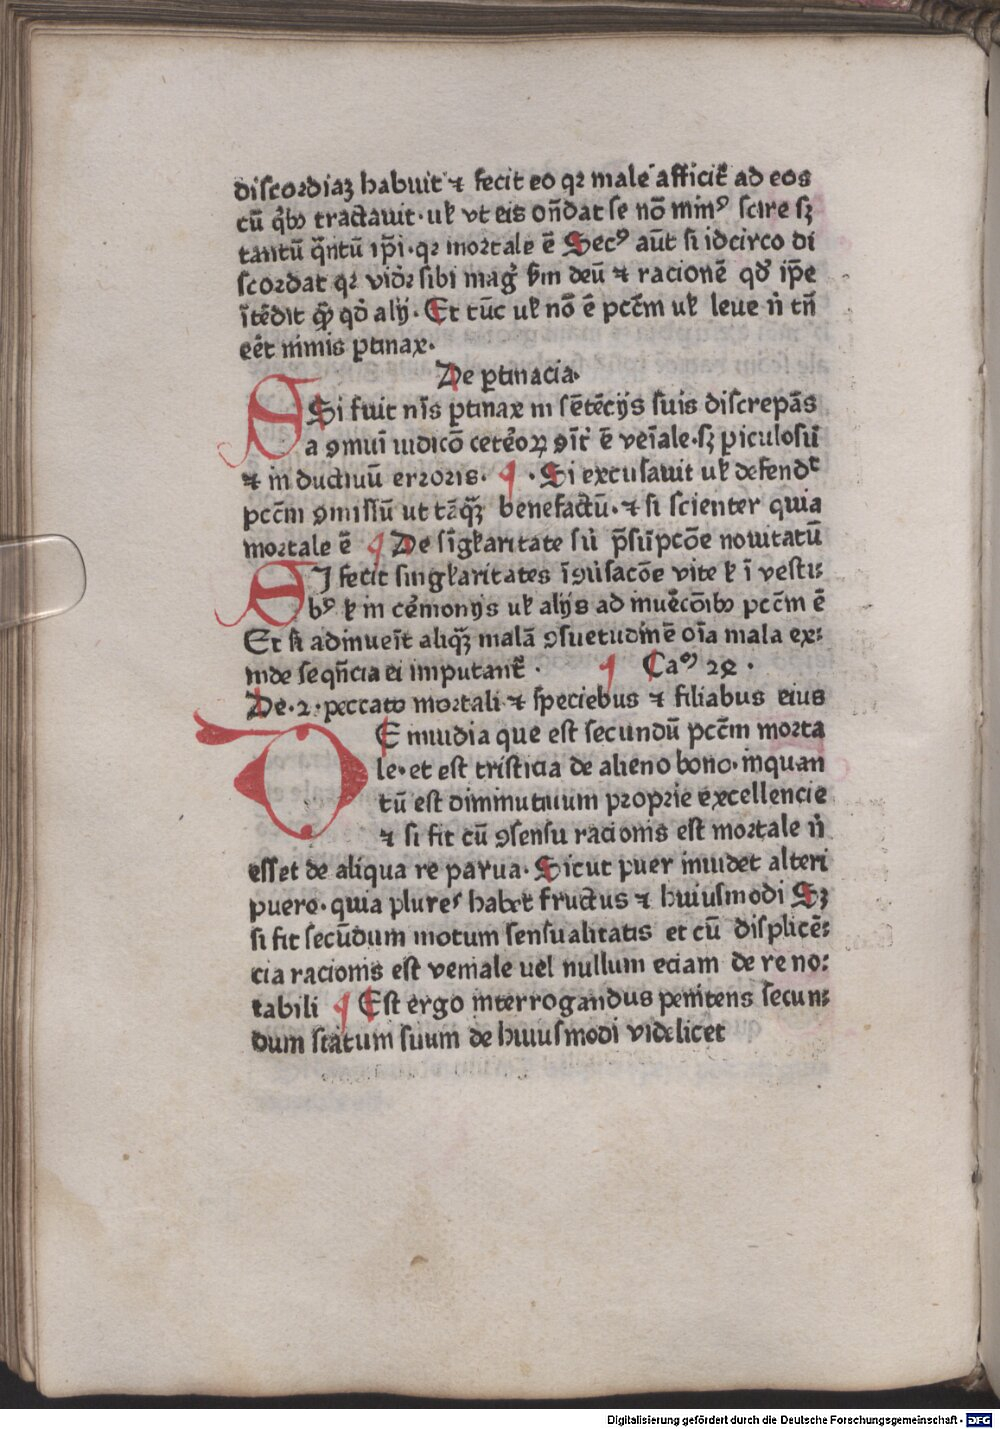 discordiaʒ habuit ⁊ fecit eo qꝛ male afficit᷑ ad eos
cū qͥbꝯ tractauit· uł vt eis on̄dat se nō minꝰ scire sʒ
tantū qͣntū ip̄i· qꝛ mortale ē Secꝰ aūt si idcirco di
scordat qꝛ vidꝛ sibi magͥ ẜm deū ⁊ racionē qđ ip̄e
ītēdit qͣꝫ qđ alij· Et tūc uł nō ē pcc̄m uł leue n̄ tn̄
eēt nimis ꝑtinax·
De ꝑtinacia·
Si fuit nīs ꝑtinax in sētēcijs suis discrepās
a ꝯmuī iudicō ceteroꝝ ꝯīt᷑ ē veīale· sʒ ꝑiculosū
⁊ inductiuū erroris· ¶ · Si excusauit uł defendᵗ
pcc̄m ꝯmissū ut tāqꝫ benefactū· ⁊ si scienter quia
mortale ē ¶ De sīgłaritate sū p̄sūpcōe nouitatū
SJ fecit singłaritates īꝯūsacōe vite ł ī vesti⸗
bꝰ ł in cēmonijs uł alijs ad inuēcōibꝯ pcc̄m ē
Et si adinueīt aliqꝫ malā ꝯsuetudinē oīa mala ex⸗
inde seqn̄cia ei imputant᷑ · ¶ Caᵐ 28 ·
De· 2· peccato mortali ⁊ speciebus ⁊ filiabus eius
DE inuidia que est secundū pcc̄m morta
le· et est tristicia de alieno bono· inquan
tū est diminutiuum proprie excellencie
⁊ si fit cū ꝯsensu racionis est mortale n̄
esset de aliqua re parua· Sicut puer inuidet alteri
puero· quia plures habet fructus ⁊ huiusmodi Sʒ
si fit secūdum motum sensualitatis et cū displicē⸗
cia racionis est veniale uel nullum eciam de re no⸗
tabili ¶ Est ergo interrogandus penitens secun⸗
dum statum suum de huiusmodi videlicet
Digitalisierung gefördert durch die Deutsche Forschungsgemeinschaft - DFG